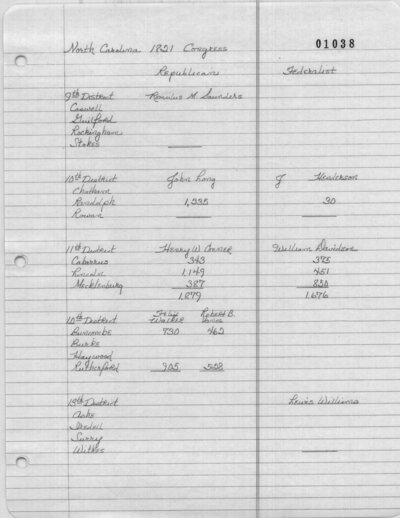 01038
North Carolina 1821 Congress
Republican Federalist
9th District Romulus M. Saunders
Caswell
Guilford
Rockingham
Stokes
10th District John Long J Henderson
Chatham
Randolph 1,335 30
Rowan
11th District Henry W. Conner William Davidson
Cabarrus 343 395
Lincoln 1,149 451
Mecklenburg 387 830
1,879 1,676
District Felix Walker Robert B. Vance
Buncombe 730 462
Burke
Haywood
Rutherford 905 508
13th District Lewis Williams
Ashe
Iredell
Surry
Wilkes